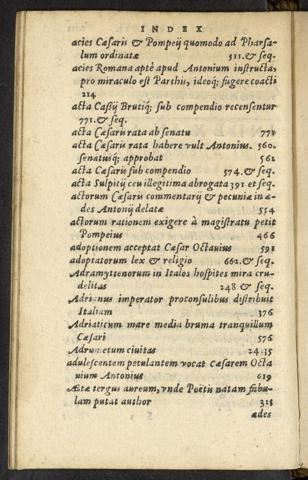 INDEX
acies Cæsaris & Pompeij quomodo ad Pharsa-
lum ordinatæ 511. & seq.
acies Romana aptè apud Antonium instructa,
pro miraculo est Parthis, ideoq; fugere coacti
214
acta Caßij Brutiq; sub compendio recensentur
771. & seq.
acta Cæsaris rata ab senatu 771
acta Cæsaris rata habere vult Antonius. 560.
senatusq; approbat 561
acta Cæsaris sub compendio 574. & seq.
acta Sulpitij ceu illegitima abrogata 391 et seq.
actorum Cæsaris commentarij & pecuniæ in æ-
des Antonij delatæ 554
actorum rationem exigere à magistratu petit
Pompeius 466
adoptionem acceptat Cæsar Octauius 591
adoptatorum lex & religio 662. & seq.
Adramyttenorum in Italos hospites mira cru-
delitas 248 & seq.
Adrianus imperator proconsulibus distribuit
Italiam 376
Adriaticum mare media bruma tranquillum
Cæsari 576
Adrumetum ciuitas 24.35
adulescentem petulantem vocat Cæsarem Octa
uium Antonius 619
Ætæ tergus aureum, vnde Poëtis natam fabu-
lam putat author 313
ædes